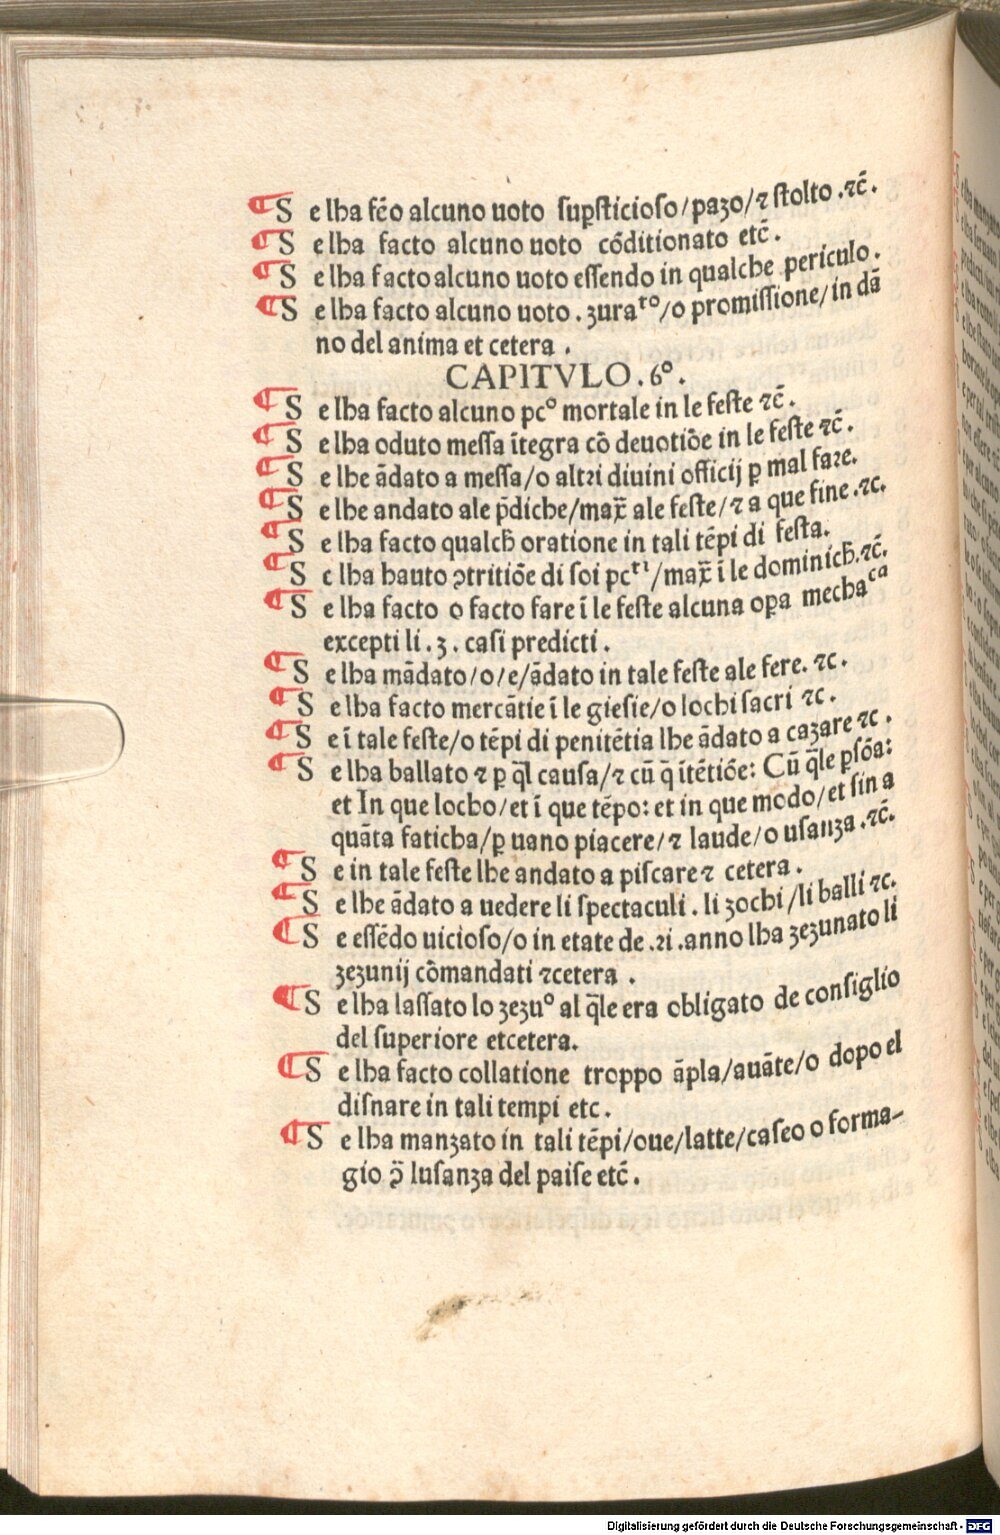 ¶ S e lha fc̄o alcuno uoto supsticioso/pazo/⁊ stolto .⁊c̄.
¶ S e lha facto alcuno uoto cōditionato etc̄.
¶ S e lha facto alcuno uoto essendo in qualche periculo.
¶ S e lha facto alcuno uoto . zuraᵗᵒ/o promissione/in dā
no del anima et cetera .
CAPITVLO . 6º.
¶ S e lha facto alcuno pcº mortale in le feste ⁊c̄.
¶ S e lha oduto messa ītegra cō deuotiōe in le feste ⁊c̄.
¶ S e lhe ādato a messa/o altri diuini officij ꝑ mal fare.
¶ S e lhe andato ale p̄diche/max̄ ale feste/⁊ a que fine .⁊c.
¶ S e lha facto qualch̄ oratione in tali tēpi di festa.
¶ S e lha hauto ↄtritiōe di soi pcᵗⁱ/max̄ ī le dominich̄.⁊c̄.
¶ S e lha facto o facto fare ī le feste alcuna oꝑa mechaᶜᵃ
excepti li . 3 . casi predicti .
¶ S e lha mādato/o/e/ādato in tale feste ale fere. ⁊c.
¶ S e lha facto mercātie ī le giesie/o lochi sacri ⁊c .
¶ S e ī tale feste/o tēpi di penitētia lhe ādato a cazare ⁊c .
¶ S e lha ballato ⁊ ꝑ q̄l causa/⁊ cū q̄ ītētiōe: Cū q̄le ꝑsōa:
et In que locho/et ī que tēpo: et in que modo/et sin a
quāta faticha/ꝑ uano piacere/⁊ laude/o usanza .⁊c̄.
¶ S e in tale feste lhe andato a piscare ⁊ cetera .
¶ S e lhe ādato a uedere li spectaculi . li zochi/li balli ⁊c.
¶ S e essēdo uicioso/o in etate de .21 .anno lha zezunato li
zezunij cōmandati ⁊cetera .
¶ S e lha lassato lo zezuº al q̄le era obligato de consiglio
del superiore etcetera.
¶ S e lha facto collatione troppo āpla/auāte/o dopo el
disnare in tali tempi etc .
¶ S e lha manzato in tali tēpi/oue/latte/caseo o forma-
gio ↄ̄ lusanza del paise etc̄ .
Digitalisierung gefördert durch die Deutsche Forschungsgemeinschaft - DFG